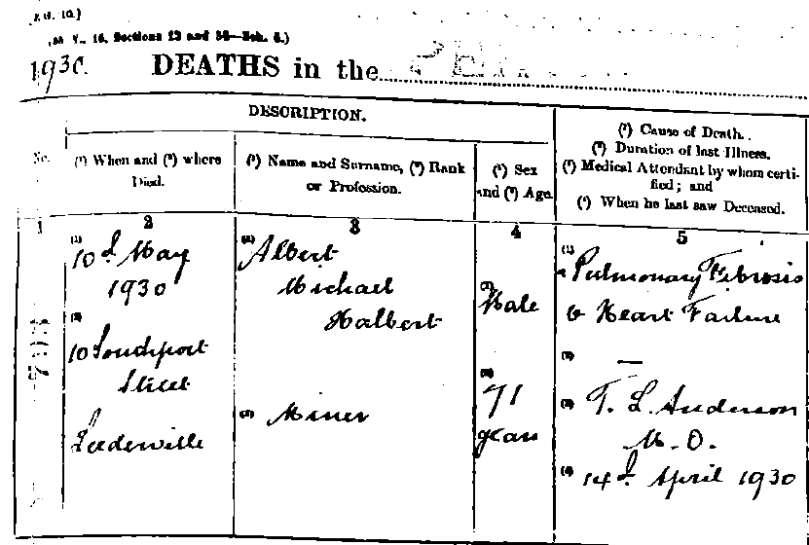 16. Sections 13 and 34—Sch. 5.)
1930. DEATHS in the
DESCRIPTION.
No.
(1) When and (2) where
Died.
(1) Name and Surname, (2) Rank
or Profession.
(1) Sex
and (2) Age.
(1) Cause of Death.
(2) Duration of last Illness.
(3) Medical Attendant by whom certi-
fied; and
(4) When he last saw Deceased.
1 2 3 4 5
(1) 10th May
1930
(2) 10 Southport
Street
Leederville
(1) Albert
Michael
Halbert
(2) Miner
(1) Male
(2) 71
years
(1) a Pulmonary Fibrosis
b Heart Failure
(2) —
(3) T. L. Anderson
M. D.
(4) 14th April 1930